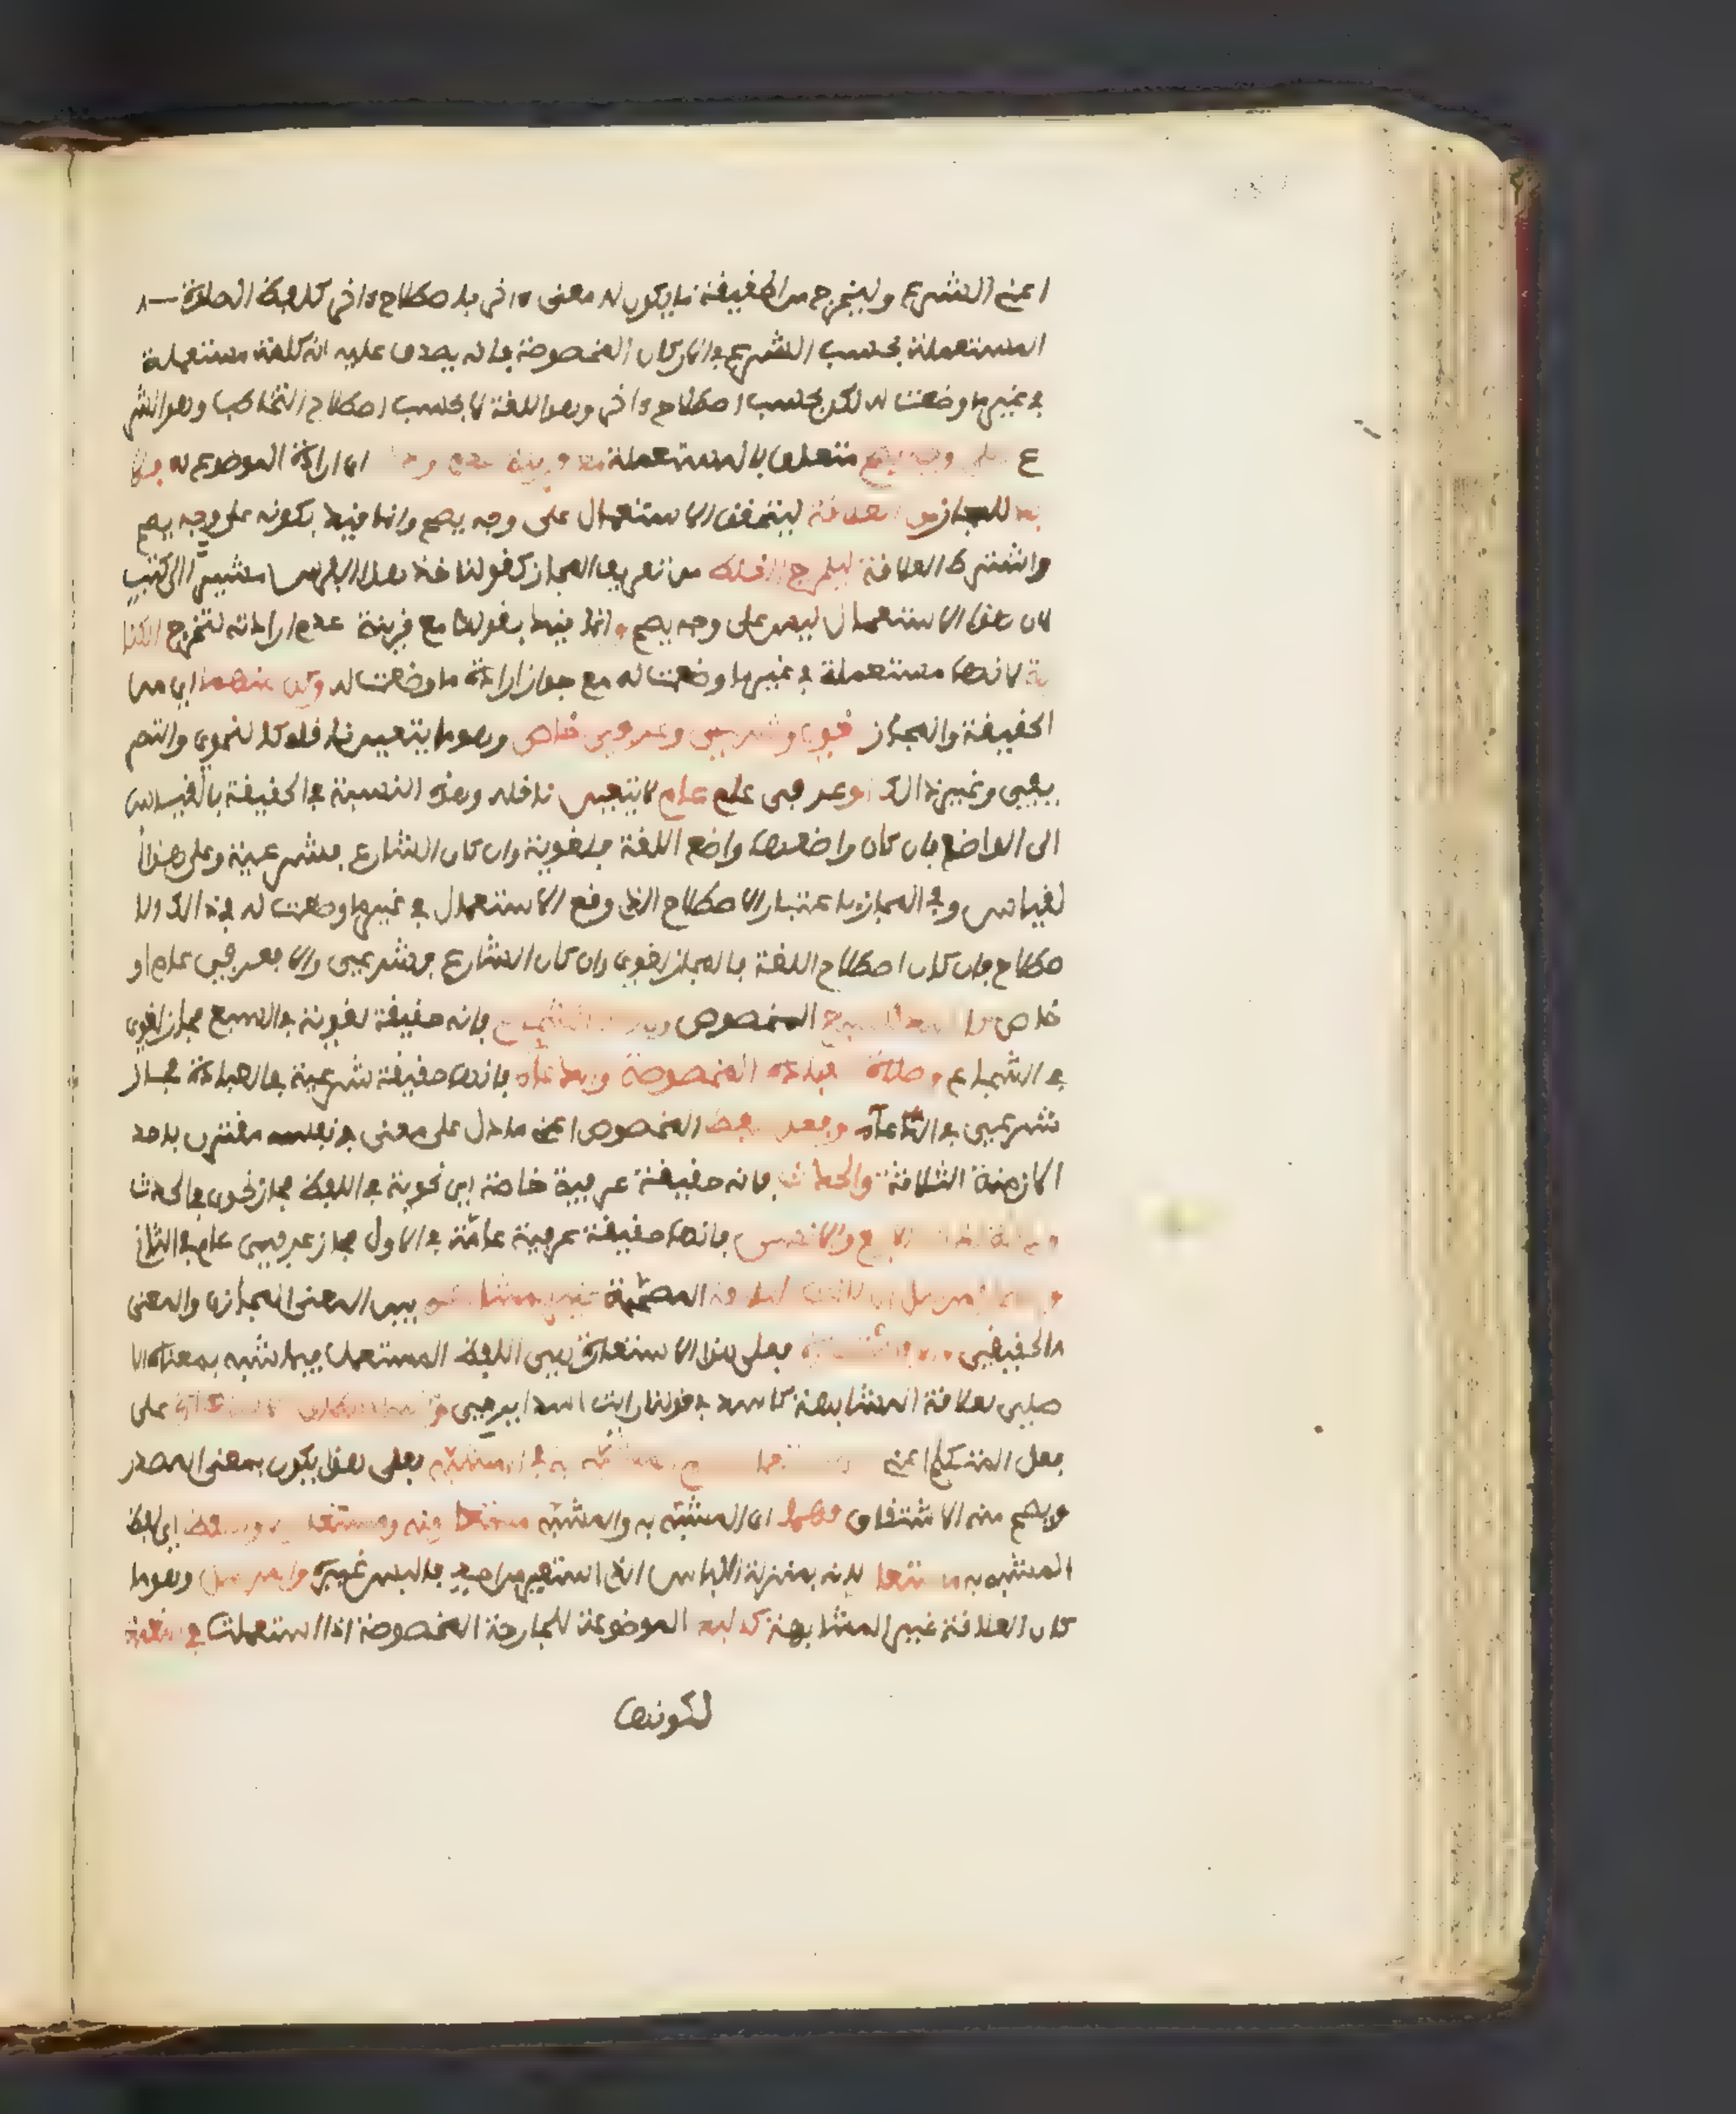 اعني الشرع وليخرج من الحقيقة ما يكون له معنى ءاخر باصطلاح ءاخر كلفظ الصلاة
المستعملة بحسب الشرع في الاركان المخصوصة فانه يصدق عليه انه كلمة مستعملة
في غير ما وضعت له لكن بحسب اصطلاح ءاخر وهو اللغة لا بحسب اصطلاح التخاطب وهو الشر
ع على وجه يصح متعلق بالمستعملة مع قرينة عدم اى ارادة الموضوع له فلا
بد للمجاز من العلاقة ليتحقق الاستعمال على وجه يصح وانما قيد بكونه على وجه يصح
واشترط العلاقة ليخرج الغلط من تعريف المجاز كقولنا خذ هذا الفرس مشيرا الى كتب
لان هذا الاستعمال ليس على وجه يصح وانما قيد بقولنا مع قرينة عدم ارادته لتخرج الكنا
ية لانها مستعملة في غير ما وضعت له مع جواز ارادة ما وضعت له وكل منهما اي من
الحقيقة والمجاز لغوي وشرعي وعرفي خاص وهو ما يتعين ناقله كالنحوي والتصر
يفي وغير ذالك او عرفي عام لا يتعين ناقله وهذه النسبة في الحقيقة بالقياس
الى الواضع فان كان واضعها واضع اللغة فلغوية وان كان الشارع فشرعية وعلى هذا ا
لقياس وفي المجاز باعتبار الاصطلاح الذي وقع الاستعمال في غير ما وضعت له في ذالك الا
صطلاح فان كان اصطلاح اللغة فالمجاز لغوي وان كان الشارع فشرعي والا فعرفي عام او
خاص المخصوص فانه حقيقة لغوية في السبع مجاز لغوي
في الشجاع وصلاة للعبادة المخصوصة والدعاء فانها حقيقة شرعية في العبادة مجاز
شرعي في الدعاء وفعل للفظ المخصوص اعني ما دل على معنى في نفسه مقترن باحد
الازمنة الثلاثة والحدث فانه حقيقة عرفية خاصة اي نحوية في اللفظ مجاز نحوي في الحدث
الاربع والانس فانها حقيقة عرفية عامة في الاول مجاز عرفي عام في الثاني
مرسل ان كانت العلاقة المصححة غير المشابهة بين المعنى المجازي والمعنى
الحقيقي فعلى هذا الاستعارة هي اللفظ المستعمل فيما شبه بمعناه الا
صلي لعلاقة المشابهة كاسد في قولنا رايت اسدا يرمي على
فعل المتكلم اعني المشبه به في المشبه فعلى هذا يكون بمعنى المصدر
ويصح منه الاشتقاق فهما اى المشبه به والمشبه مستعار منه ومستعار له واللفظ اي لفظ
المشبه به مستعار لانه بمنزلة اللباس الذي استعير من احد فالبس غيره والمرسل وهو ما
كان العلاقة غير المشابهة كاليد الموضوعة للجارحة المخصوصة اذا استعملت في النعمة
لكونها